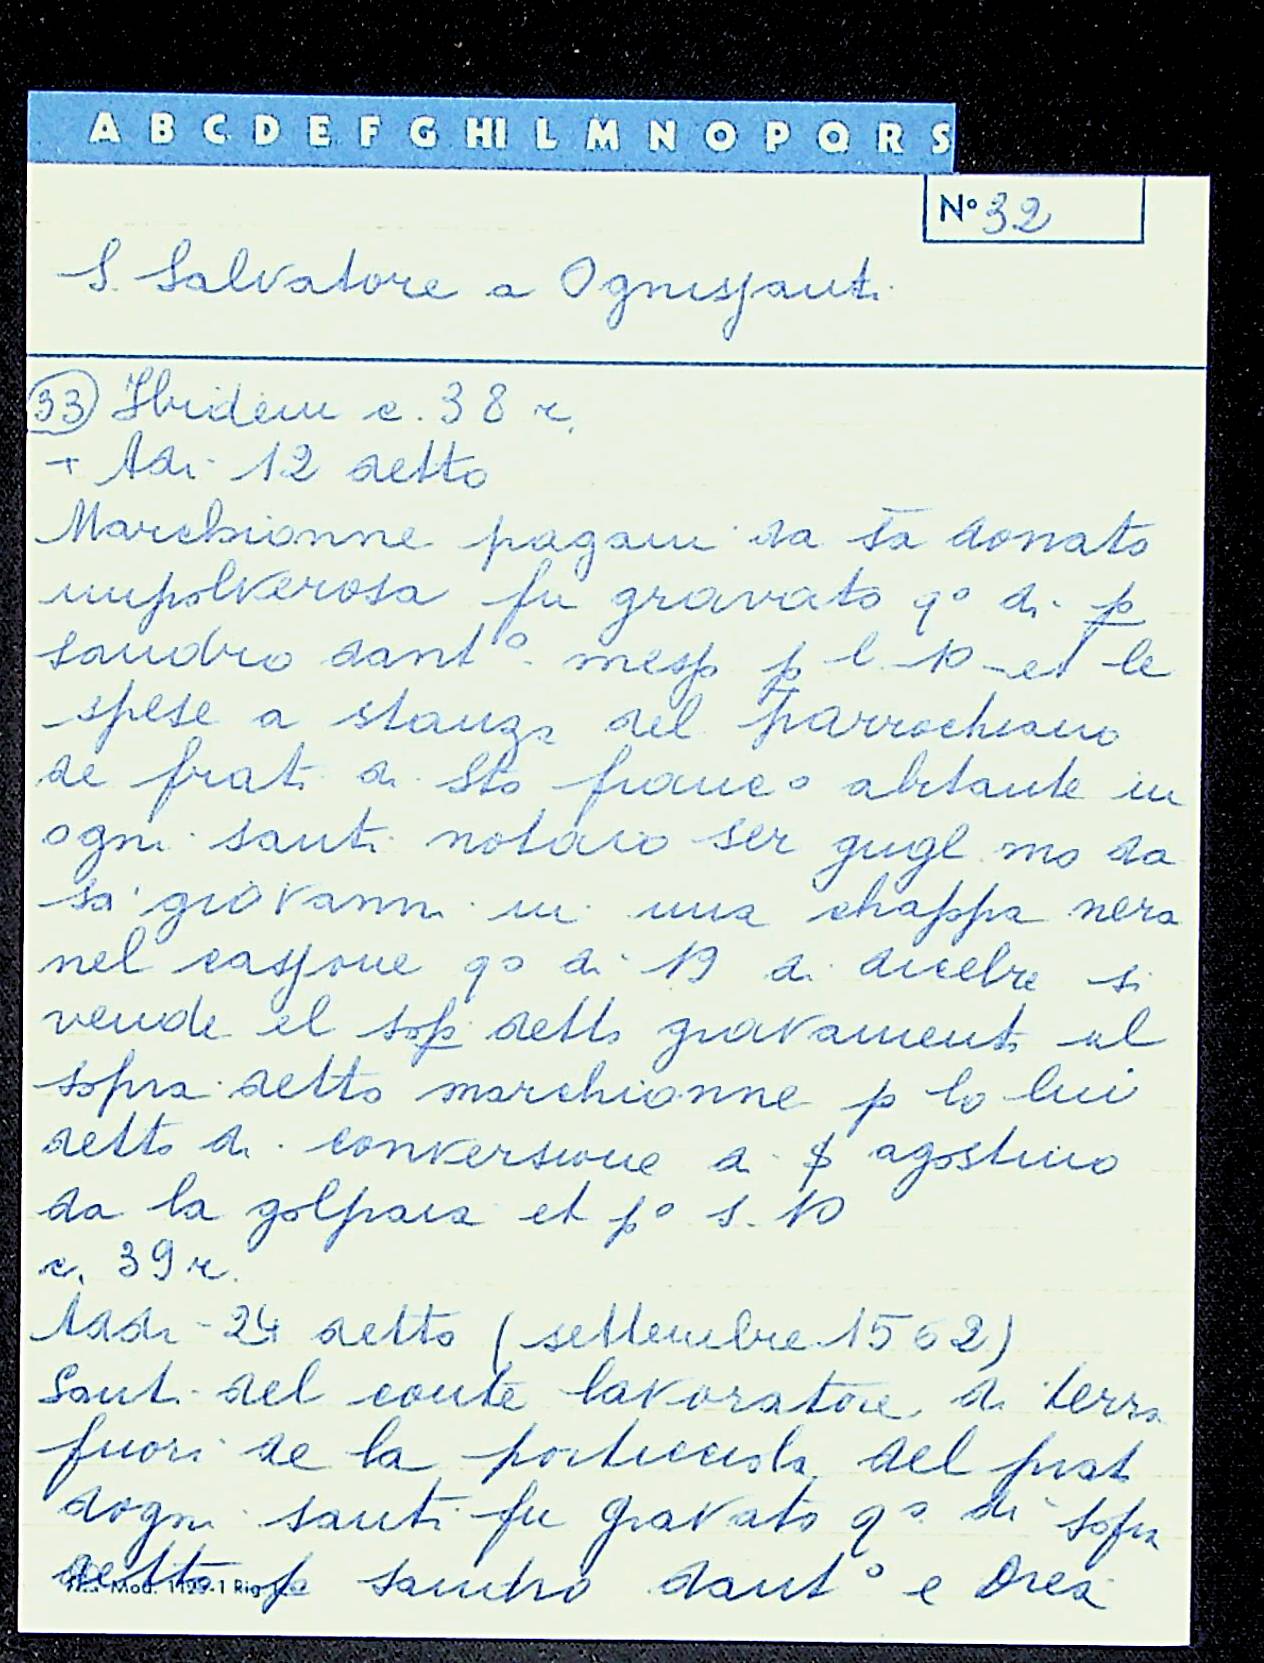 A B C D E F G HI L M N O P Q R S
N° 32
S. Salvatore a Ognissanti
33 Ibidem c. 38 r.
+ Adi 12 detto
Marchionne pagani da sa donato
inpolverosa fu gravato qo di p
sandro dant° mess p l. 10 et le
spese a stanza del parrochiano
de frati di Sto franc° abitante in
ogni santi notaio ser gugl mo da
sa giovanni in una chappa nera
nel cassone qo di 19 di dicebre si
vende el sop detto gravamenti al
sopra detto marchionne p lo lui
detto di conversione a $ agostino
da la golpaia et p° s. 10
c. 39 r.
Addi 24 detto (settembre 1562)
Santi del conte lavoratore di terra
fuori de la porticciola del prat
dogni santi fu gravato qo di sopra
detto p sandro dant° e Drea
Mod. 1129-1 Rig